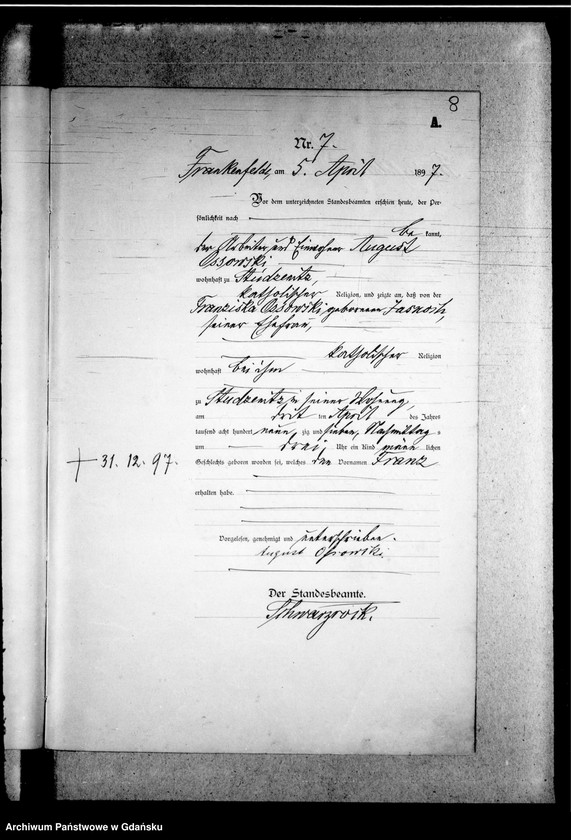 8
A.
Nr. 7.
Frankenfelde, am 5. April 1897.
Vor dem unterzeichneten Standesbeamten erschien heute, der Per-
sönlichkeit nach
be kannt,
der Arbeiter und Einwohner August
Ossowski
wohnhaft zu Studzenitz,
katholischer Religion, und zeigte an, daß von der
Franziska Ossowski, geborenen
seiner Ehefrau,
katholischer Religion
wohnhaft bei ihm
zu Studzenitz in seiner Wohnung
am dritten April des Jahres
tausend acht hundert neunzig und sieben, Nachmittags
um drei Uhr ein Kind männlichen
Geschlechts geboren worden sei, welches den Vornamen Franz
† 31. 12. 97.
erhalten habe.
Vorgelesen, genehmigt und unterschrieben.
August Ossowski.
Der Standesbeamte.
Archiwum Państwowe w Gdańsku